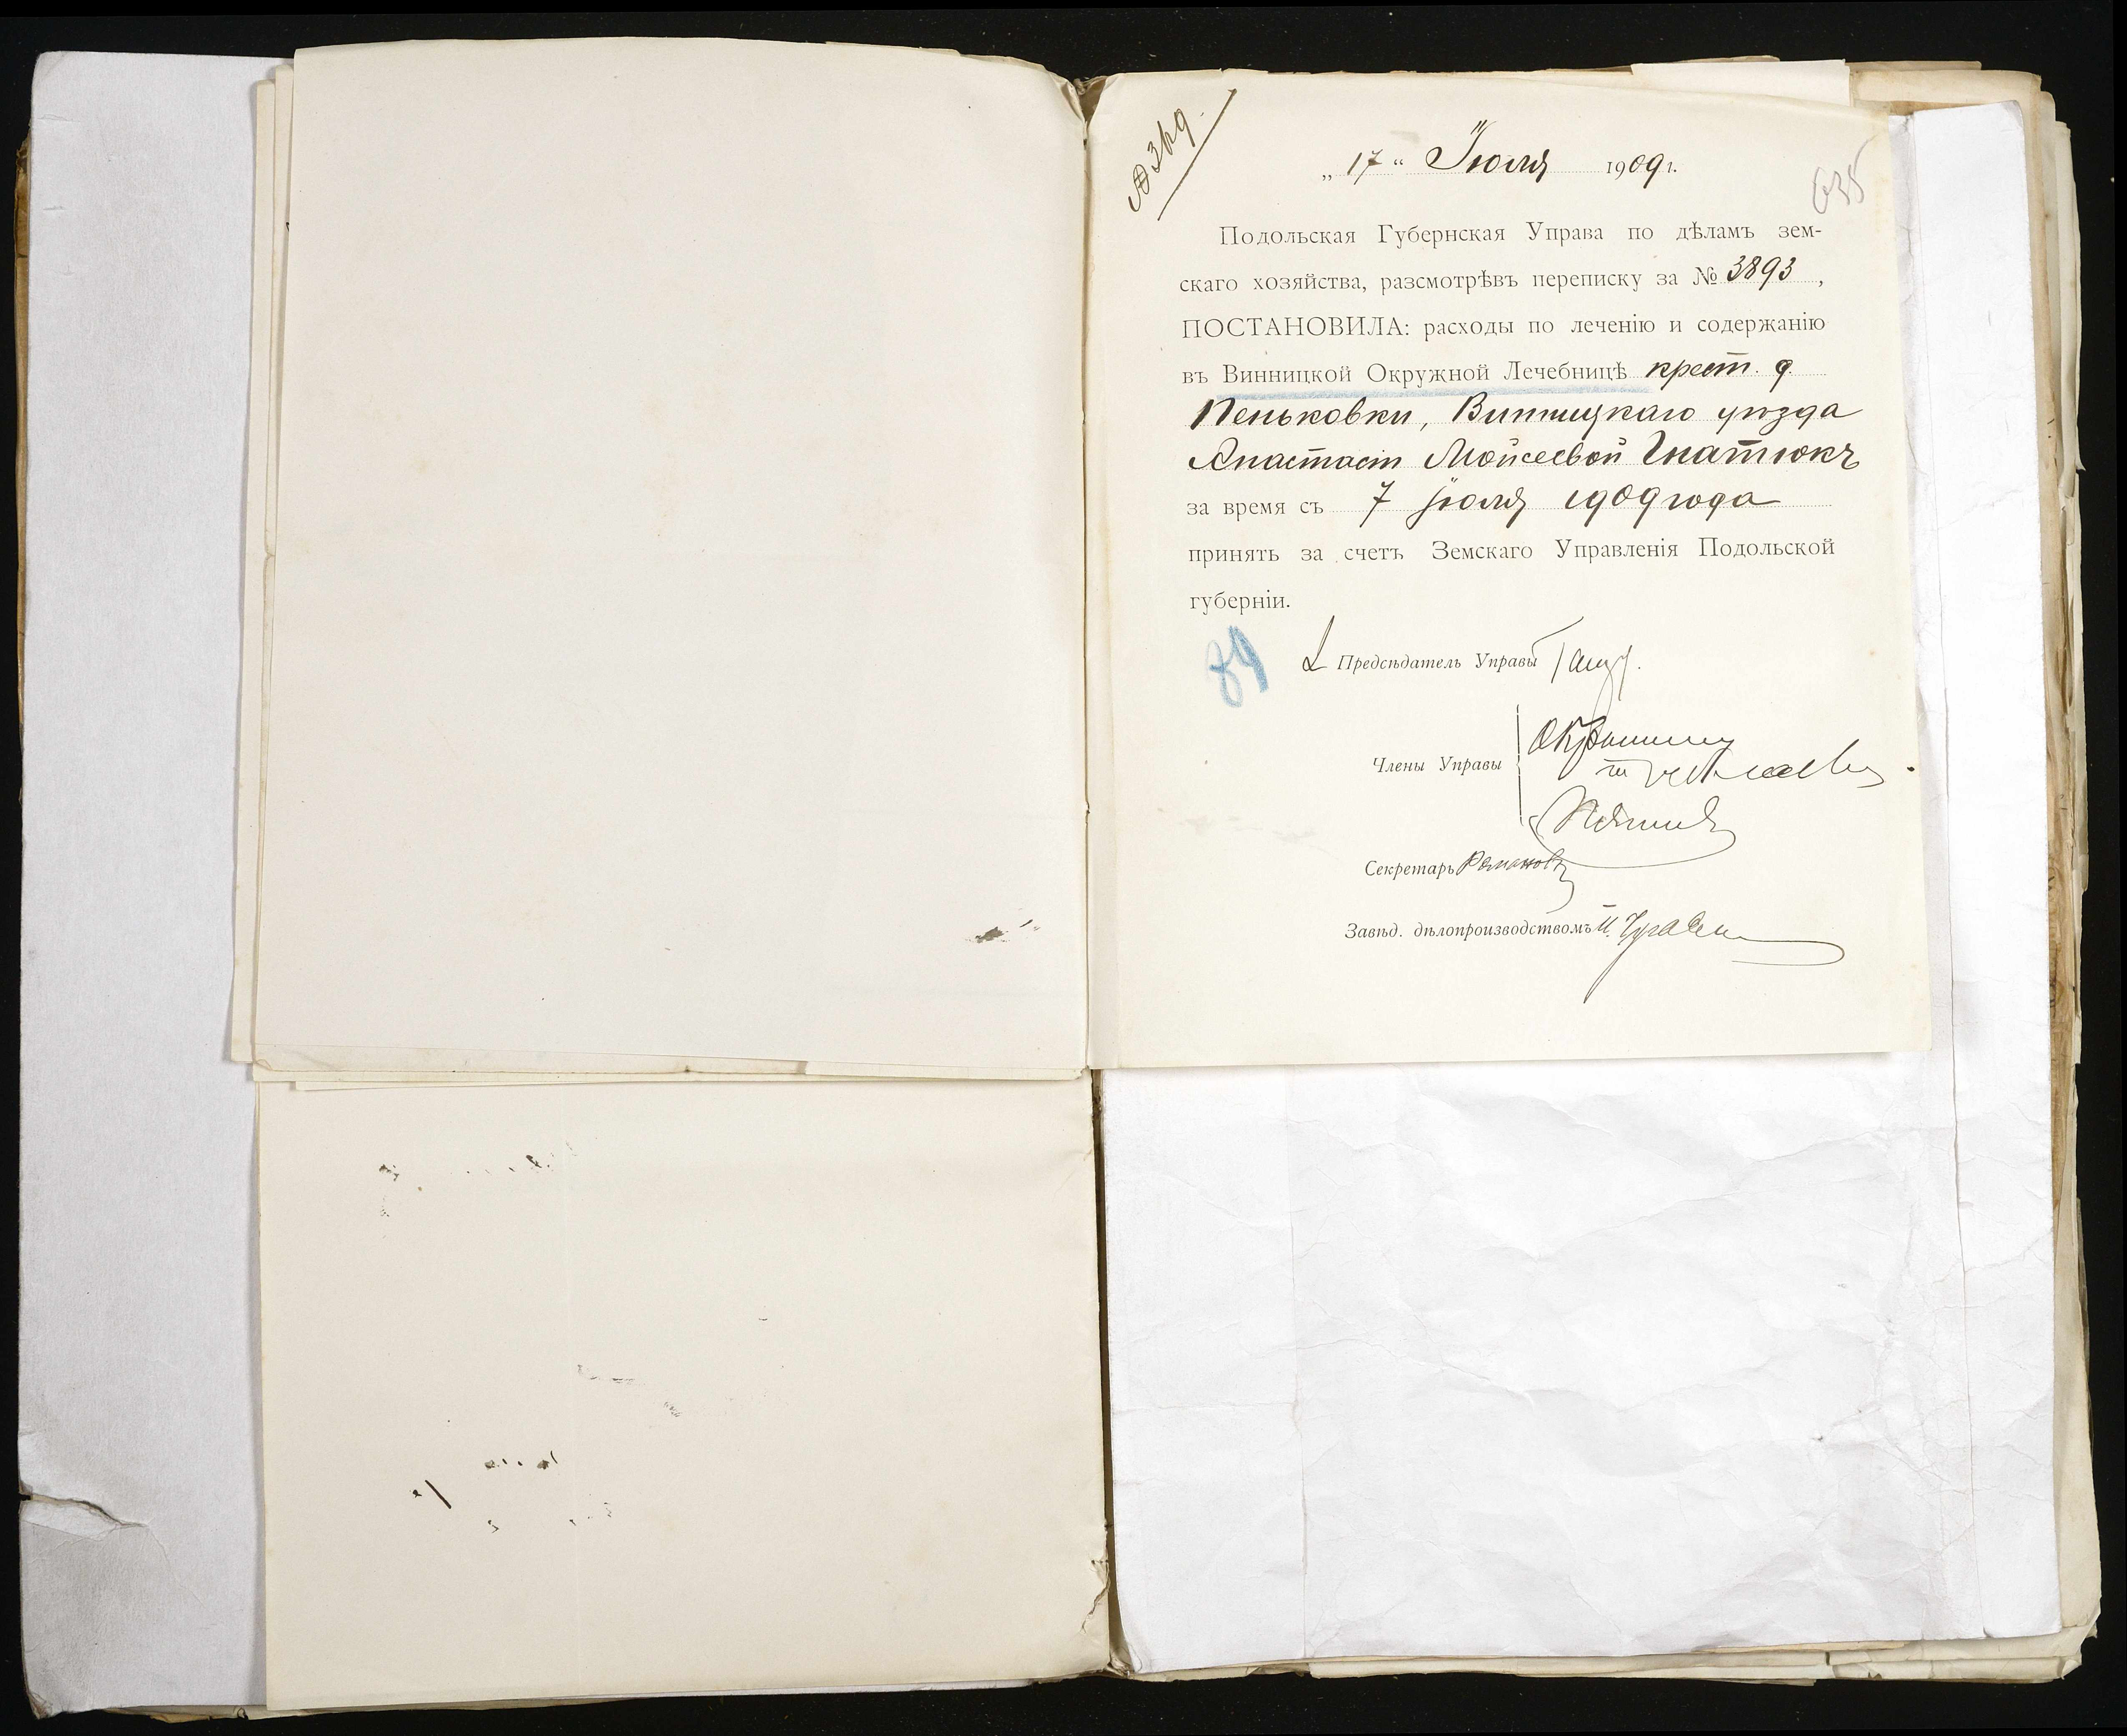 „ 17 “ Іюля 1909 г.
635
Подольская Губернская Управа по дѣламъ зем-
скаго хозяйства, разсмотрѣвъ переписку за № 3893 ,
ПОСТАНОВИЛА: расходы по леченію и содержанію
въ Винницкой Окружной Лечебницѣ крест. д.
Пеньковки, Винницкаго уѣзда
Анастасіи Мойсеевой Гнатюкъ
за время съ 7 Іюля 1909 года
принять за счетъ Земскаго Управленія Подольской
губерніи.
89
Предсѣдатель Управы
Члены Управы
Секретарь Романовъ
Завѣд. дѣлопроизводствомъ